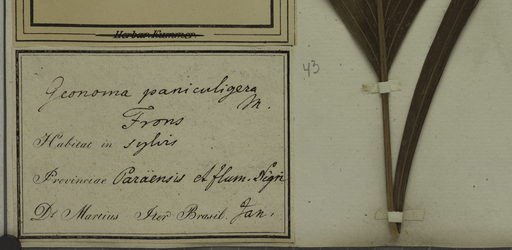 Herbar. Kummer.
43
Geonoma paniculigera
M.
Frons
Habitat in sylvis
Provinciae Paraënsis et flum. Nigri
Dr Martius Iter Brasil. Jan.